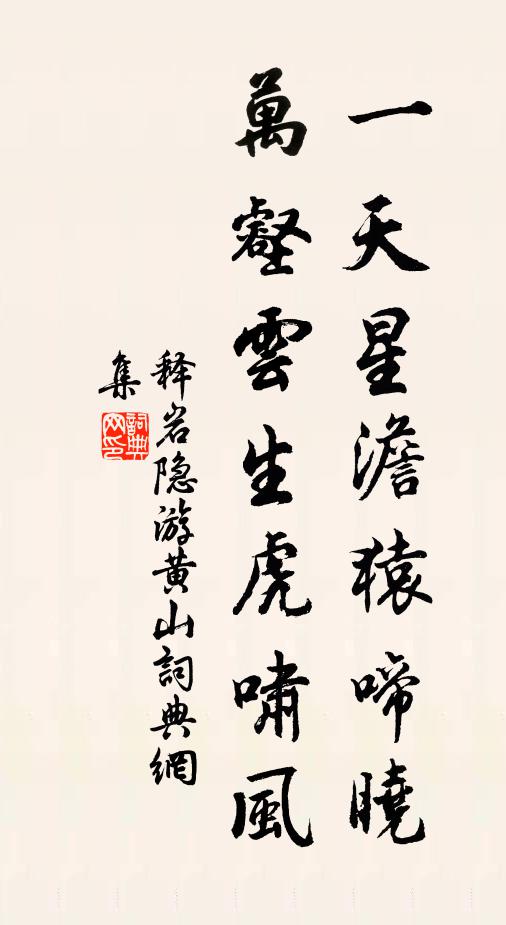 一天星澹猿啼曉
萬壑雲生虎嘯風
释岩隐游黄山詞典網
集
詞典
网印